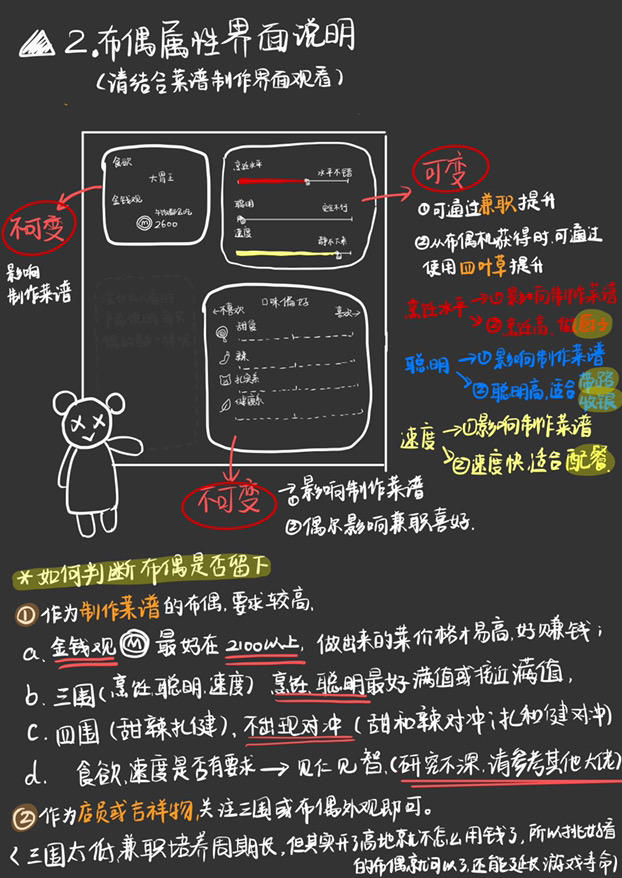 2.布偶属性界面说明
(请结合菜谱制作界面观看)
食欲
大胃王
金钱观
2600
不可变
影响
制作菜谱
烹饪水平
水平不错
聪明
速度
静不下来
可变
①可通过兼职提升
②从布偶机获得时,可通过
使用四叶草提升
烹饪水平→①影响制作菜谱
②烹饪高,做厨子
聪明→①影响制作菜谱
②聪明高,适合带路
收银
速度→①影响制作菜谱
②速度快,适合配餐.
口味偏好
←不喜欢
喜欢→
甜蜜
辣
扎实系
健康系
不可变
→①影响制作菜谱
②偶尔影响兼职喜好.
*如何判断布偶是否留下
①作为制作菜谱的布偶,要求较高,
a.金钱观Ⓜ最好在2100以上,做出来的菜价格才易高,好赚钱;
b.三围(烹饪,聪明,速度)烹饪、聪明最好满值或接近满值,
c.四围(甜辣扎健),不出现对冲(甜和辣对冲;扎和健对冲)
d. 食欲,速度是否有要求→见仁见智,(研究不深,请参考其他大佬)
②作为店员或吉祥物,关注三围或布偶外观即可。
(三围太低,兼职培养周期长,但其实开了高地就不怎么用钱了,所以挑好看
的布偶就可以了,还能延长游戏寿命)